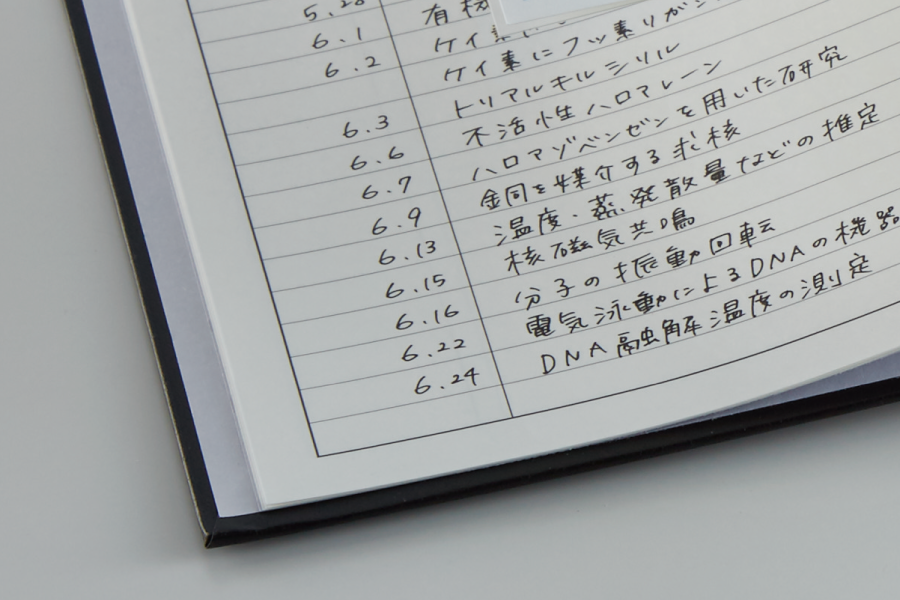 6.1 有
6.2 ケイ
ケイ素にフッ素リガン
6.3 トリアルキルシリル
6.6 不活性ハロアレーン
6.7 ハロアゾベンゼンを用いた研究
6.9 銅を媒介する求核
6.13 温度・蒸発散量などの推定
6.15 核磁気共鳴
6.16 分子の振動回転
6.22 電気泳動によるDNAの機器
6.24 DNA融解温度の測定